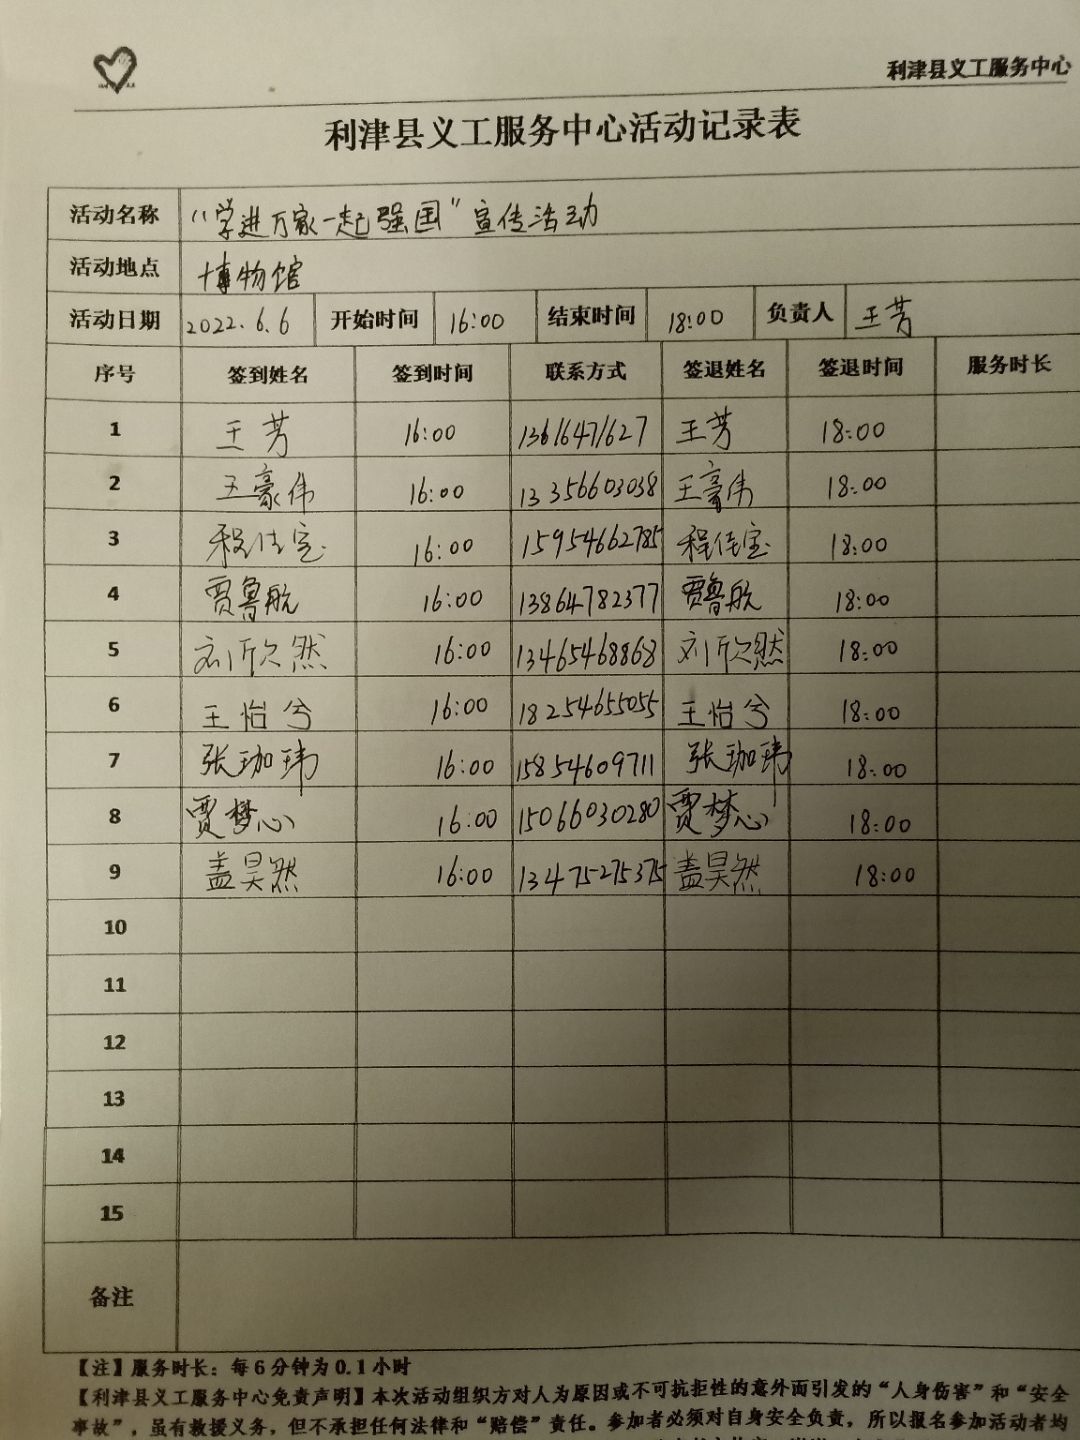 利津县义工服务中心
利津县义工服务中心活动记录表
活动名称 “学进万家一起强国”宣传活动
活动地点 博物馆
活动日期 2022.6.6 开始时间 16:00 结束时间 18:00 负责人 王芳
序号 签到姓名 签到时间 联系方式 签退姓名 签退时间 服务时长
1 王芳 16:00 13616471627 王芳 18:00
2 王豪伟 16:00 13356603038 王豪伟 18:00
3 程佳宝 16:00 15954662785 程佳宝 18:00
4 贾鲁航 16:00 13864782377 贾鲁航 18:00
5 刘欣然 16:00 13465468868 刘欣然 18:00
6 王怡兮 16:00 18254655055 王怡兮 18:00
7 张珈玮 16:00 15854609711 张珈玮 18:00
8 贾梦心 16:00 15066030280 贾梦心 18:00
9 盖昊然 16:00 13475275375 盖昊然 18:00
10
11
12
13
14
15
备注
【注】服务时长：每6分钟为0.1小时
【利津县义工服务中心免责声明】本次活动组织方对人为原因或不可抗拒性的意外而引发的“人身伤害”和“安全
事故”，虽有救援义务，但不承担任何法律和“赔偿”责任。参加者必须对自身安全负责，所以报名参加活动者均